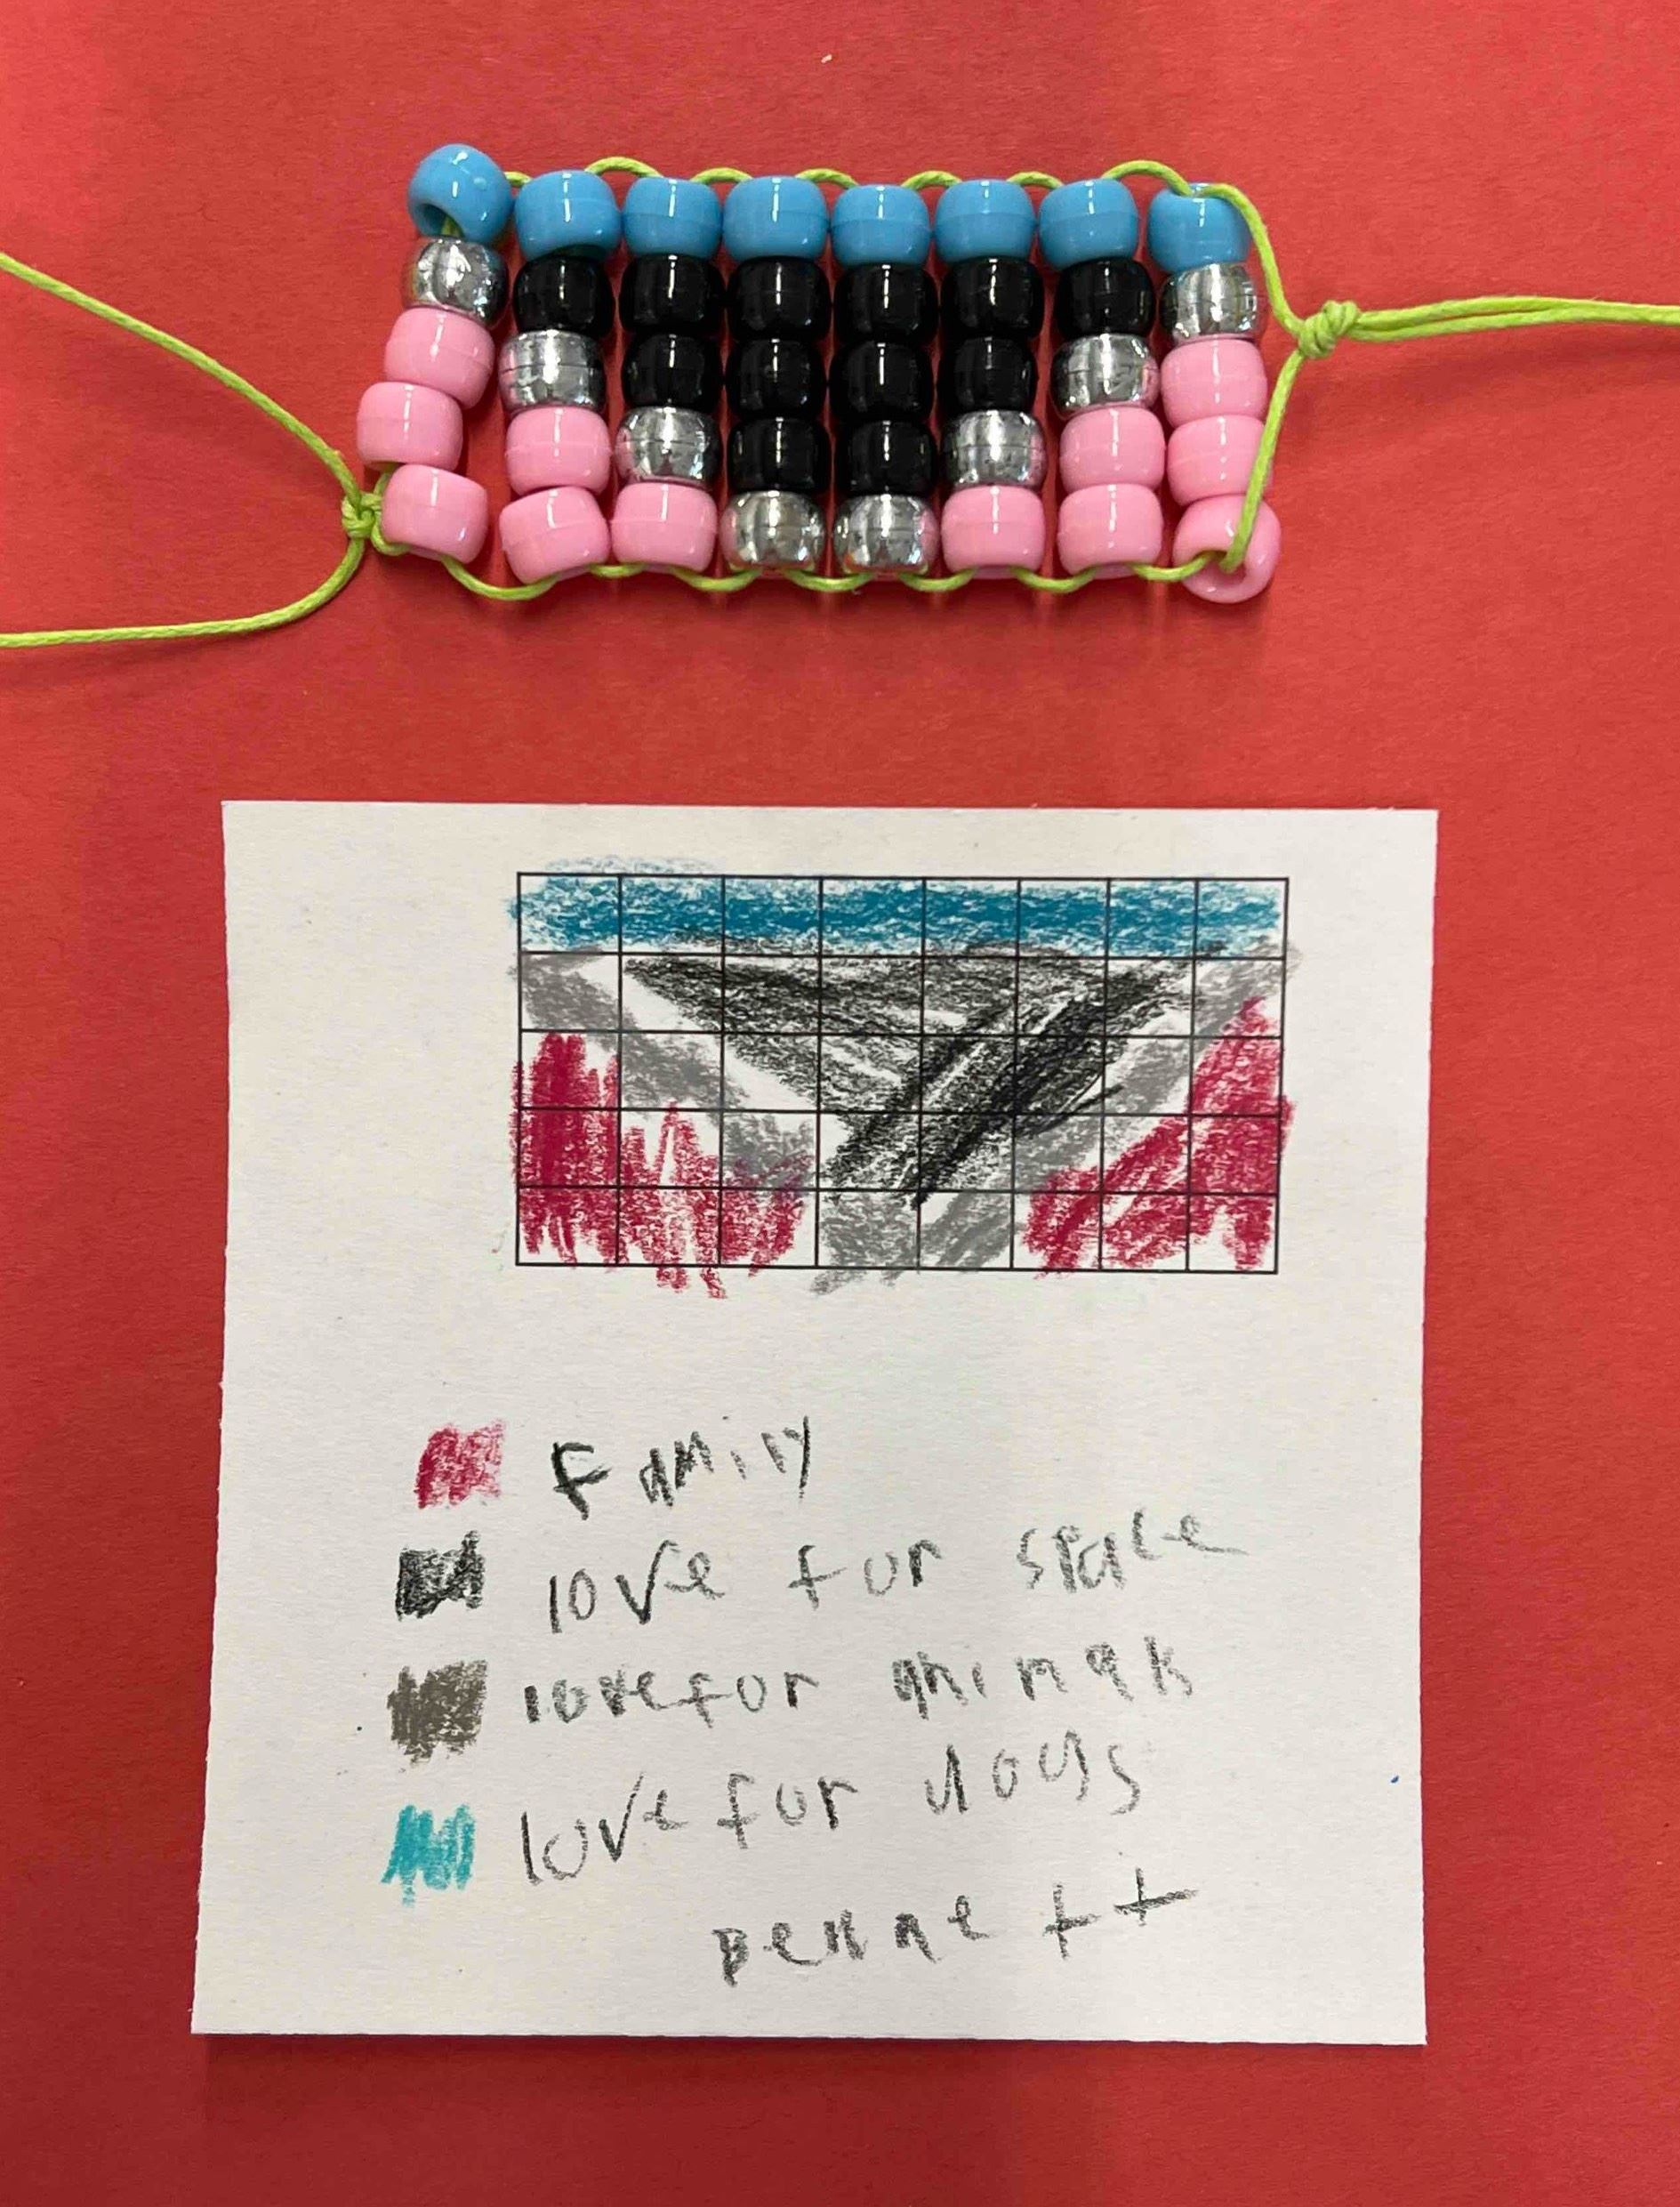 Family
love for space
love for animals
love for dogs
Bennett